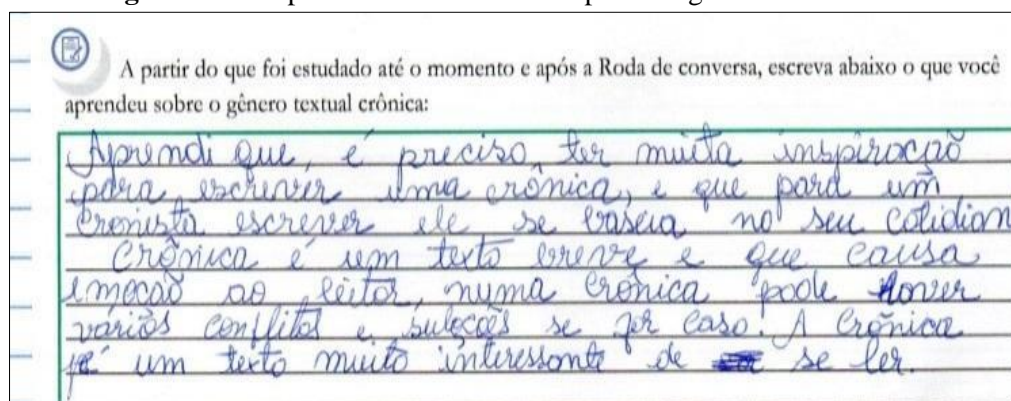 A partir do que foi estudado até o momento e após a Roda de conversa, escreva abaixo o que você
aprendeu sobre o gênero textual crônica:
Aprendi que, é preciso ter muita inspiração
para escrever uma crônica, e que para um
cronista escrever ele se baseia no seu cotidian
Crônica é um texto breve e que causa
emoção ao leitor, numa crônica pode haver
vários conflitos e se for caso. A Crônica
é um texto muito interessante de se ler.